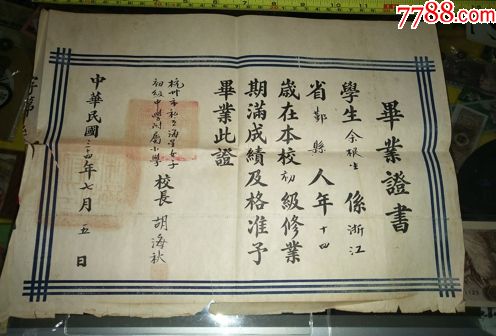 7788.com
畢業證書
學生余振生係浙江
省鄞縣人年十四
歲在本校初級修業
期滿成績及格准予
畢業此證
杭州市私立海星女子
初級中學附屬小學
校長 胡海秋
中華民國三十四年七月 五日
字第